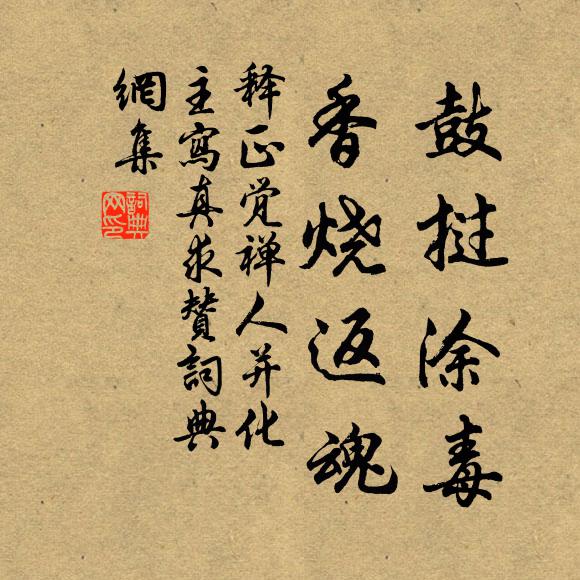 鼓挝涂毒
香烧返魂
释正觉禅人并化
主寫真求赞詞典
網集
詞典网印